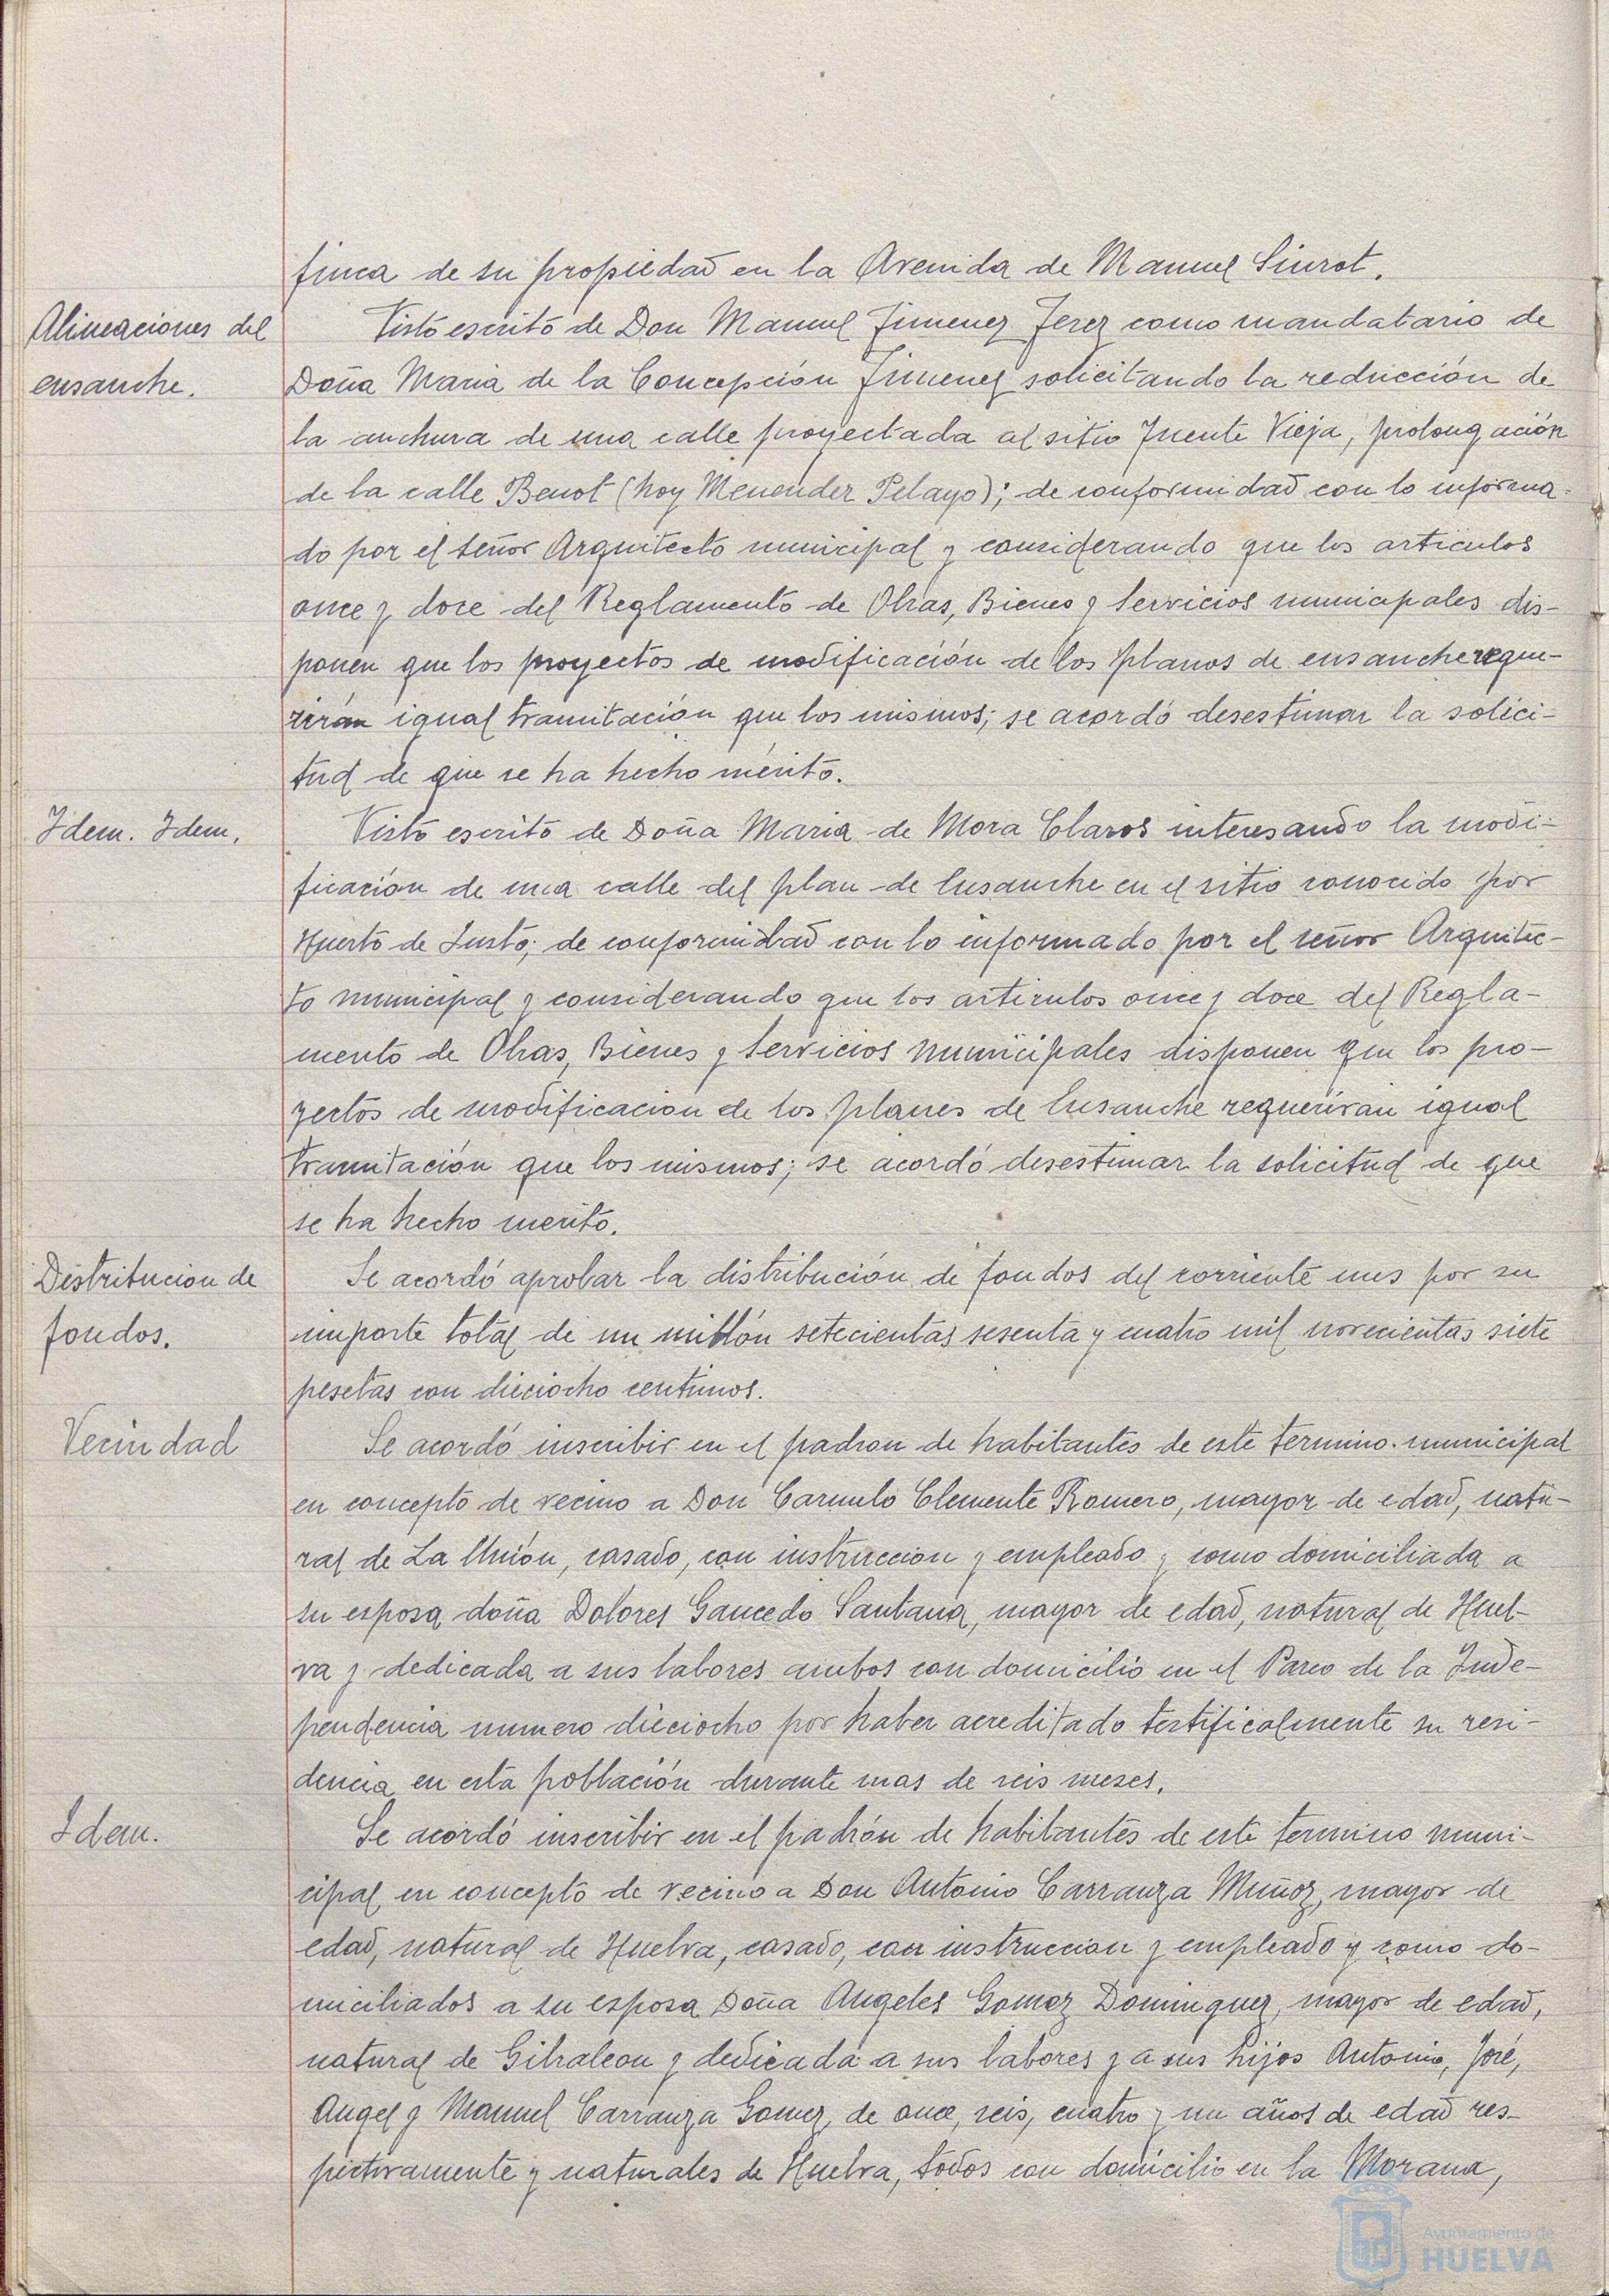 finca de su propiedad en la Avenida de Manuel Siurot.
Alineaciones del
ensanche.
Visto escrito de Don Manuel Jimenez Jerez como mandatario de
Doña Maria de la Concepción Jimenez solicitando la reducción de
la anchura de una calle proyectada al sitio Fuente Vieja, prolongación
de la calle Benot (hoy Menender Pelayo); de conformidad con lo informa-
do por el señor Arquitecto municipal y considerando que los articulos
once y doce del Reglamento de Obras, Bienes y Servicios municipales dis-
ponen que los proyectos de modificación de los planos de ensanche reque-
rirán igual tramitación que los mismos; se acordó desestimar la solici-
tud de que se ha hecho mérito.
Idem. Idem.
Visto escrito de Doña Maria de Mora Claros interesando la modi-
ficación de una calle del plan de Ensanche en el sitio conocido por
Huerto de Justo; de conformidad con lo informado por el señor Arquitec-
to municipal y considerando que los articulos once y doce del Regla-
mento de Obras, Bienes y Servicios municipales disponen que los pro-
yectos de modificacion de los planes de Ensanche requerirán igual
tramitación que los mismos; se acordó desestimar la solicitud de que
se ha hecho merito.
Distribucion de
fondos.
Se acordó aprobar la distribución de fondos del corriente mes por su
importe total de un millón setecientas sesenta y cuatro mil novecientas siete
pesetas con dieciocho centimos.
Vecindad
Se acordó inscribir en el padron de habitantes de este termino municipal
en concepto de vecino a Don Carmelo Clemente Romero, mayor de edad, natu-
ral de La Unión, casado, con instruccion y empleado y como domiciliada a
su esposa doña Dolores Gaucedo Santana, mayor de edad, natural de Huel-
va y dedicada a sus labores ambos con domicilio en el Paseo de la Inde-
pendencia numero dieciocho por haber acreditado testificalmente su resi-
dencia en esta población durante mas de seis meses.
Idem.
Se acordó inscribir en el padrón de habitantes de este termino muni-
cipal en concepto de vecino a Don Antonio Carranza Muñoz, mayor de
edad, natural de Huelva, casado, con instruccion y empleado y como do-
miciliados a su esposa Doña Angeles Gomez Dominguez, mayor de edad,
natural de Gibraleon y dedicada a sus labores y a sus hijos Antonio, José,
Angel y Manuel Carranza Gomez, de once, seis, cuatro y un años de edad res-
pectivamente y naturales de Huelva, todos con domicilio en la Morana,
Ayuntamiento de
HUELVA